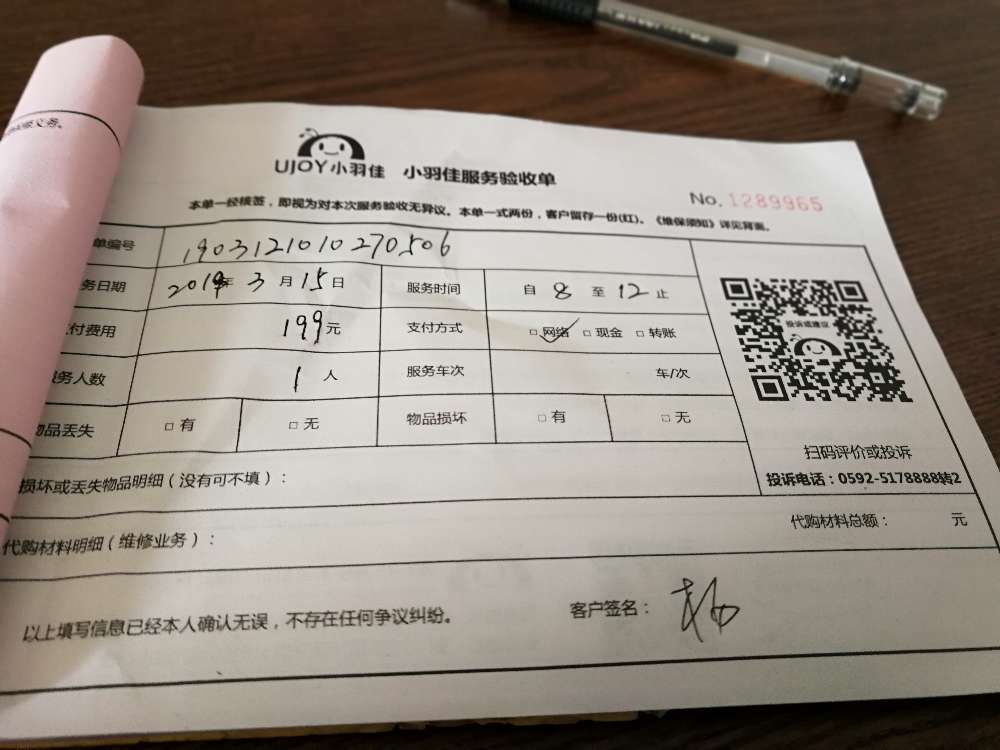 UJOY小羽佳 小羽佳服务验收单
No.1289965
本单一经核签，即视为对本次服务验收无异议。本单一式两份，客户留存一份(红)。《维保须知》详见背面。
单编号 1903121010270506
务日期 2019年3月15日 服务时间 自 8 至 12 止
付费用 199元 支付方式 □网络 □现金 □转账
服务人数 1 人 服务车次 车/次
物品丢失 □有 □无 物品损坏 □有 □无
投诉或建议
扫码评价或投诉
投诉电话：0592-5178888转2
损坏或丢失物品明细（没有可不填）：
代购材料明细（维修业务）： 代购材料总额： 元
以上填写信息已经本人确认无误，不存在任何争议纠纷。 客户签名：